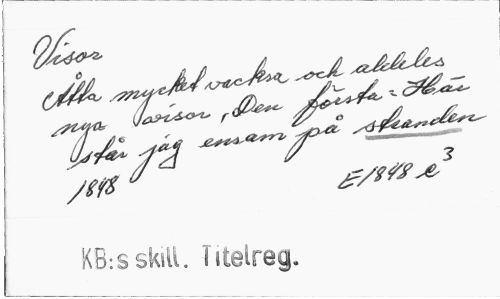 Visor
Åtta mycket vackra och aldeles
nya visor, Den första = Här
står jag ensam på stranden
1848
E1848 e3
KB:s skill. Titelreg.